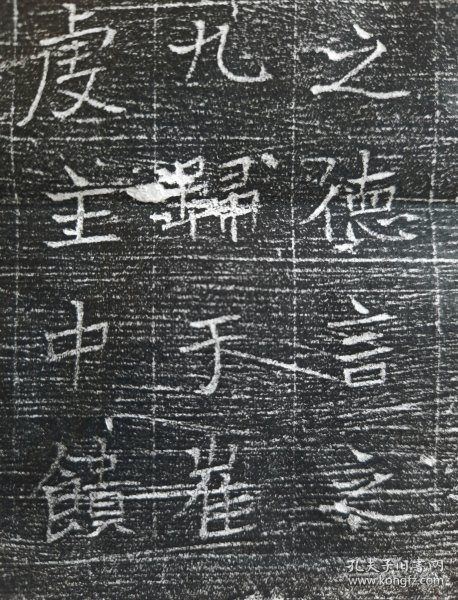 之德言之
九歸于崔
虔主中饋
孔夫子旧书网
www.kongfz.com